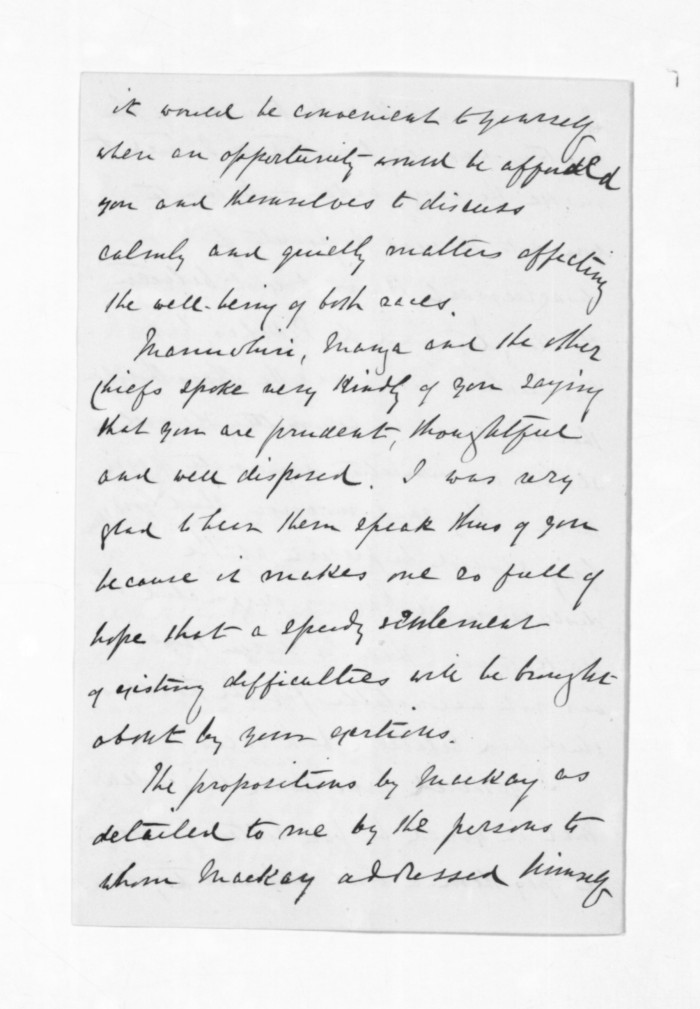 it would be convenient to yourself
when an opportunity would be afforded
you and themselves to discuss
calmly and quietly matters affecting
the well-being of both races.
Manuwhiri, Manga and the other
Chiefs spoke very kindly of you saying
that you are prudent, thoughtful
and well disposed. I was very
glad to hear them speak thus of you
because it makes one so full of
hope that a speedy settlement
of existing difficulties will be brought
about by your exertions.
The propositions by Mackay as
detailed to me by the persons to
whom Mackay addressed himself